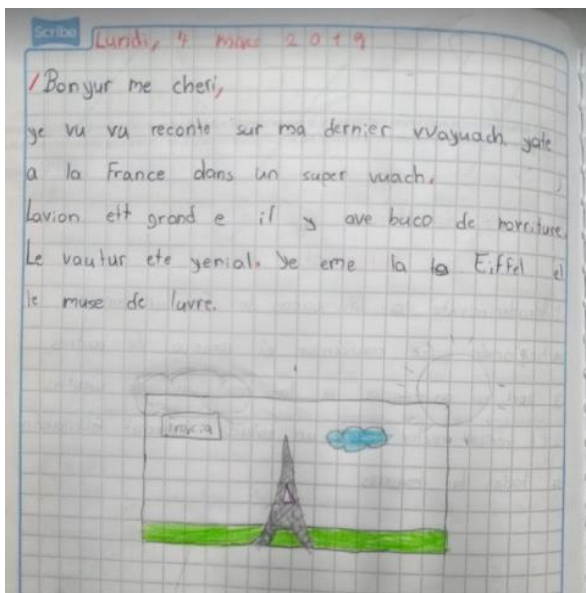 Scribe
Lundi, 4 mars 2019
Bonyur me cheri,
ye vu va reconte sur ma dernier vvayuach yate
a la France dans un super vuach.
Lavion ett grand e il y ave buco de norriture.
Le vautur ete yenial. Ye eme la la Eiffel el
le muse de luvre.